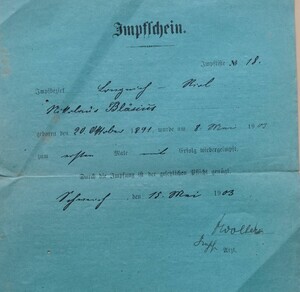 Impfschein.
Impfliste № 18.
Impfbezirk Longuich
Nikolaus Bläsius
geboren den 20. Oktober 1891 wurde am 8. Mai 1903
zum ersten Male mit Erfolg wiedergeimpft.
Durch die Impfung ist der gesetzlichen Pflicht genügt.
Schweich, den 15. Mai 1903
Arzt.